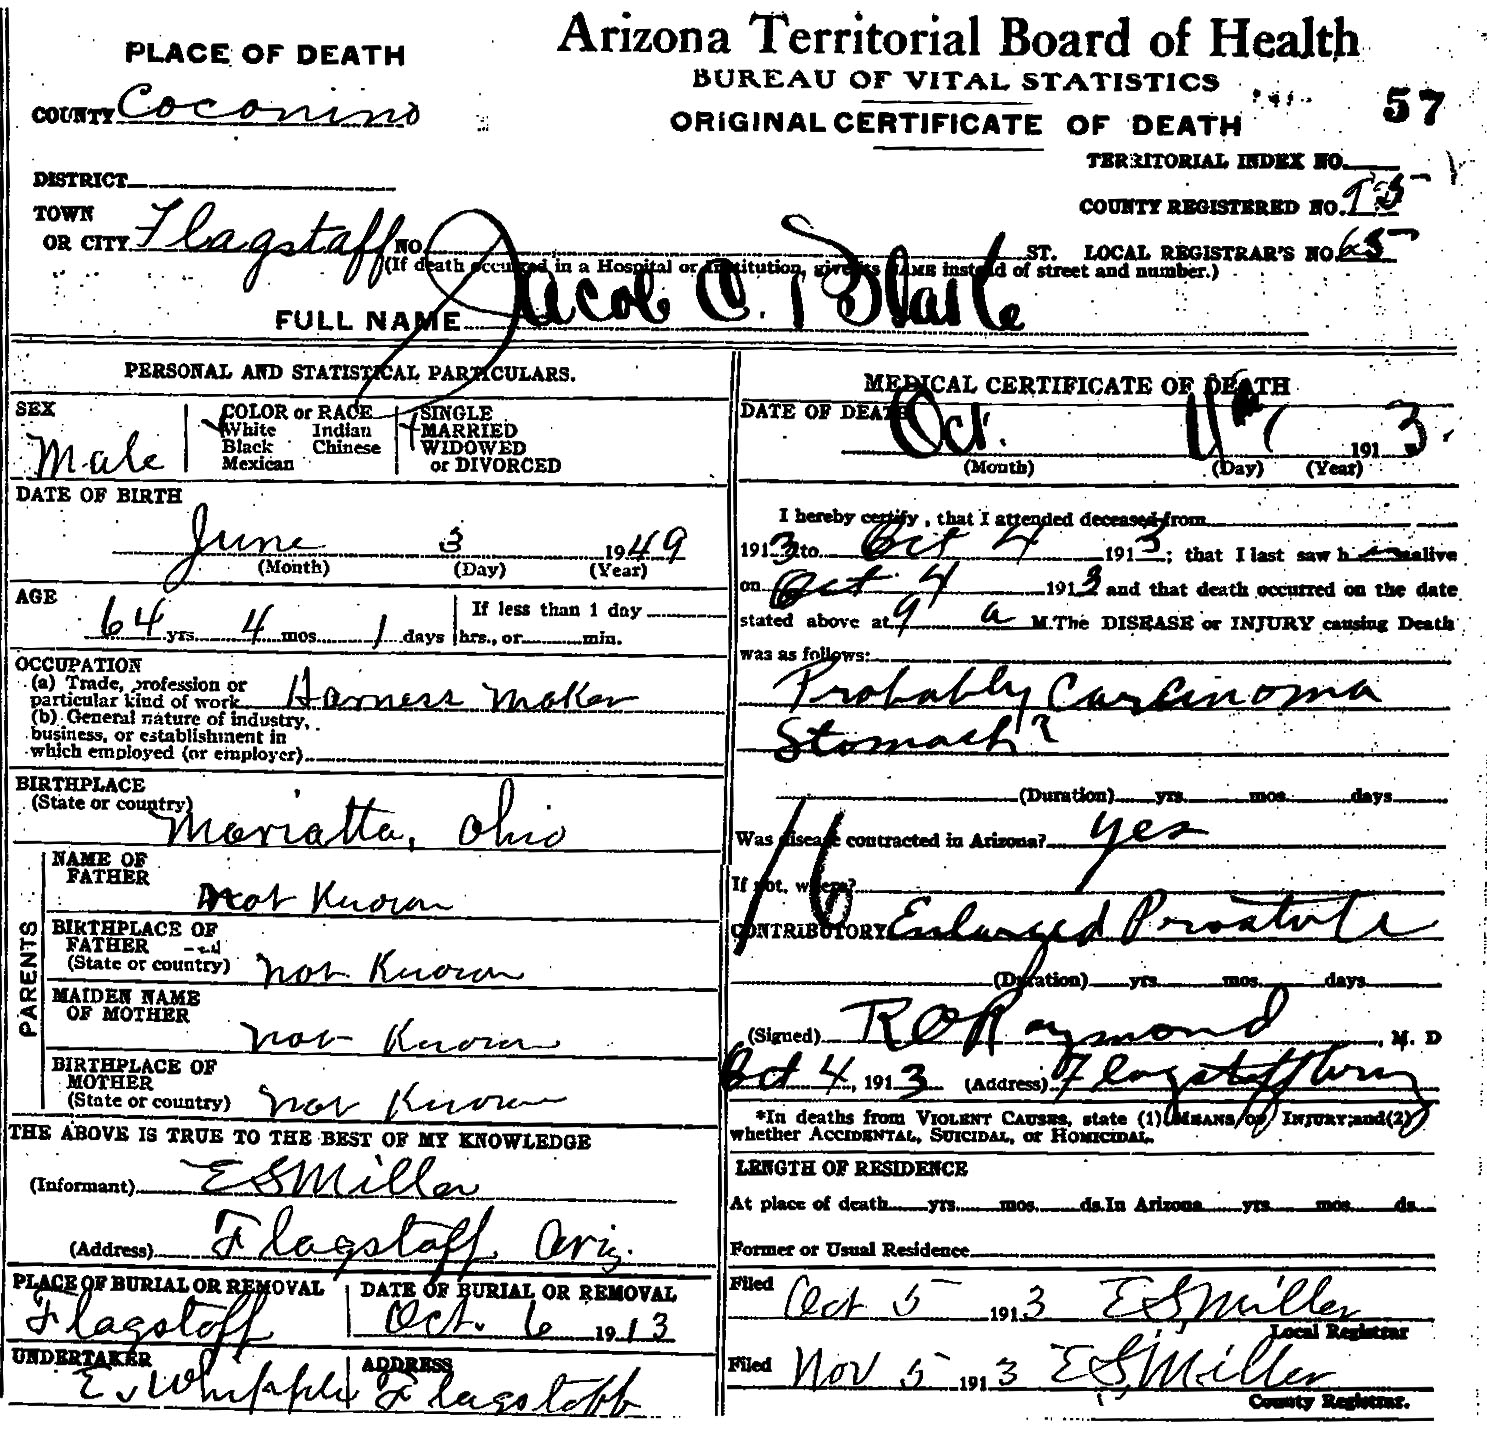 PLACE OF DEATH
Arizona Territorial Board of Health
BUREAU OF VITAL STATISTICS
ORIGINAL CERTIFICATE OF DEATH
57
COUNTY Coconino
TERRITORIAL INDEX NO.
DISTRICT
COUNTY REGISTERED NO.
TOWN OR CITY Flagstaff NO. ST. LOCAL REGISTRAR'S NO. 65
(If death occurred in a Hospital or Institution, give its NAME instead of street and number.)
FULL NAME Jacob C. Blake
PERSONAL AND STATISTICAL PARTICULARS.
SEX
Male
COLOR or RACE
White Indian
Black Chinese
Mexican
SINGLE
MARRIED
WIDOWED
or DIVORCED
DATE OF BIRTH
June 3 1949
(Month) (Day) (Year)
AGE
64 yrs. 4 mos. 1 days
If less than 1 day
hrs., or min.
OCCUPATION
(a) Trade, profession or
particular kind of work Harness Maker
(b) General nature of industry,
business, or establishment in
which employed (or employer)
BIRTHPLACE
(State or country)
Marietta, Ohio
PARENTS
NAME OF
FATHER
not Known
BIRTHPLACE OF
FATHER
(State or country) not Known
MAIDEN NAME
OF MOTHER
not Known
BIRTHPLACE OF
MOTHER
(State or country) not Known
THE ABOVE IS TRUE TO THE BEST OF MY KNOWLEDGE
(Informant) E S Miller
(Address) Flagstaff Ariz.
PLACE OF BURIAL OR REMOVAL
Flagstaff
DATE OF BURIAL OR REMOVAL
Oct. 6 1913
UNDERTAKER
E. Whipple
ADDRESS
Flagstaff
MEDICAL CERTIFICATE OF DEATH
DATE OF DEATH Oct. 4th 1913.
(Month) (Day) (Year)
I hereby certify, that I attended deceased from
1913 to Oct 4 1913; that I last saw h alive
on Oct 4 1913 and that death occurred on the date
stated above at 9 a M. The DISEASE or INJURY causing Death
was as follows:
Probably Carcinoma
Stomach?
(Duration) yrs. mos. days
Was disease contracted in Arizona? yes
If not, where?
16
CONTRIBUTORY Enlarged Prostate
(Duration) yrs. mos. days
(Signed) R O Raymond, M. D
Oct 4, 1913 (Address) Flagstaff
*In deaths from VIOLENT CAUSES, state (1) MEANS OF INJURY; and (2)
whether ACCIDENTAL, SUICIDAL, or HOMICIDAL.
LENGTH OF RESIDENCE
At place of death yrs. mos. ds. In Arizona yrs. mos. ds.
Former or Usual Residence
Filed Oct 5 1913 E S Miller
Local Registrar
Filed Nov 5 1913 E S Miller
County Registrar.